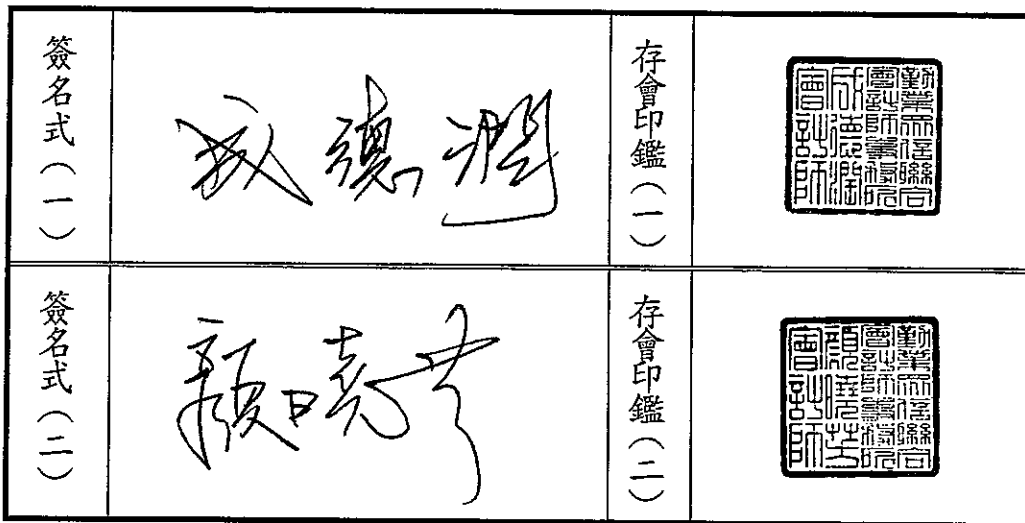 簽名式（一）
成德潤
存會印鑑（一）
勤業眾信聯合
會計師事務所
成德潤
會計師
簽名式（二）
顏曉芳
存會印鑑（二）
勤業眾信聯合
會計師事務所
顏曉芳
會計師